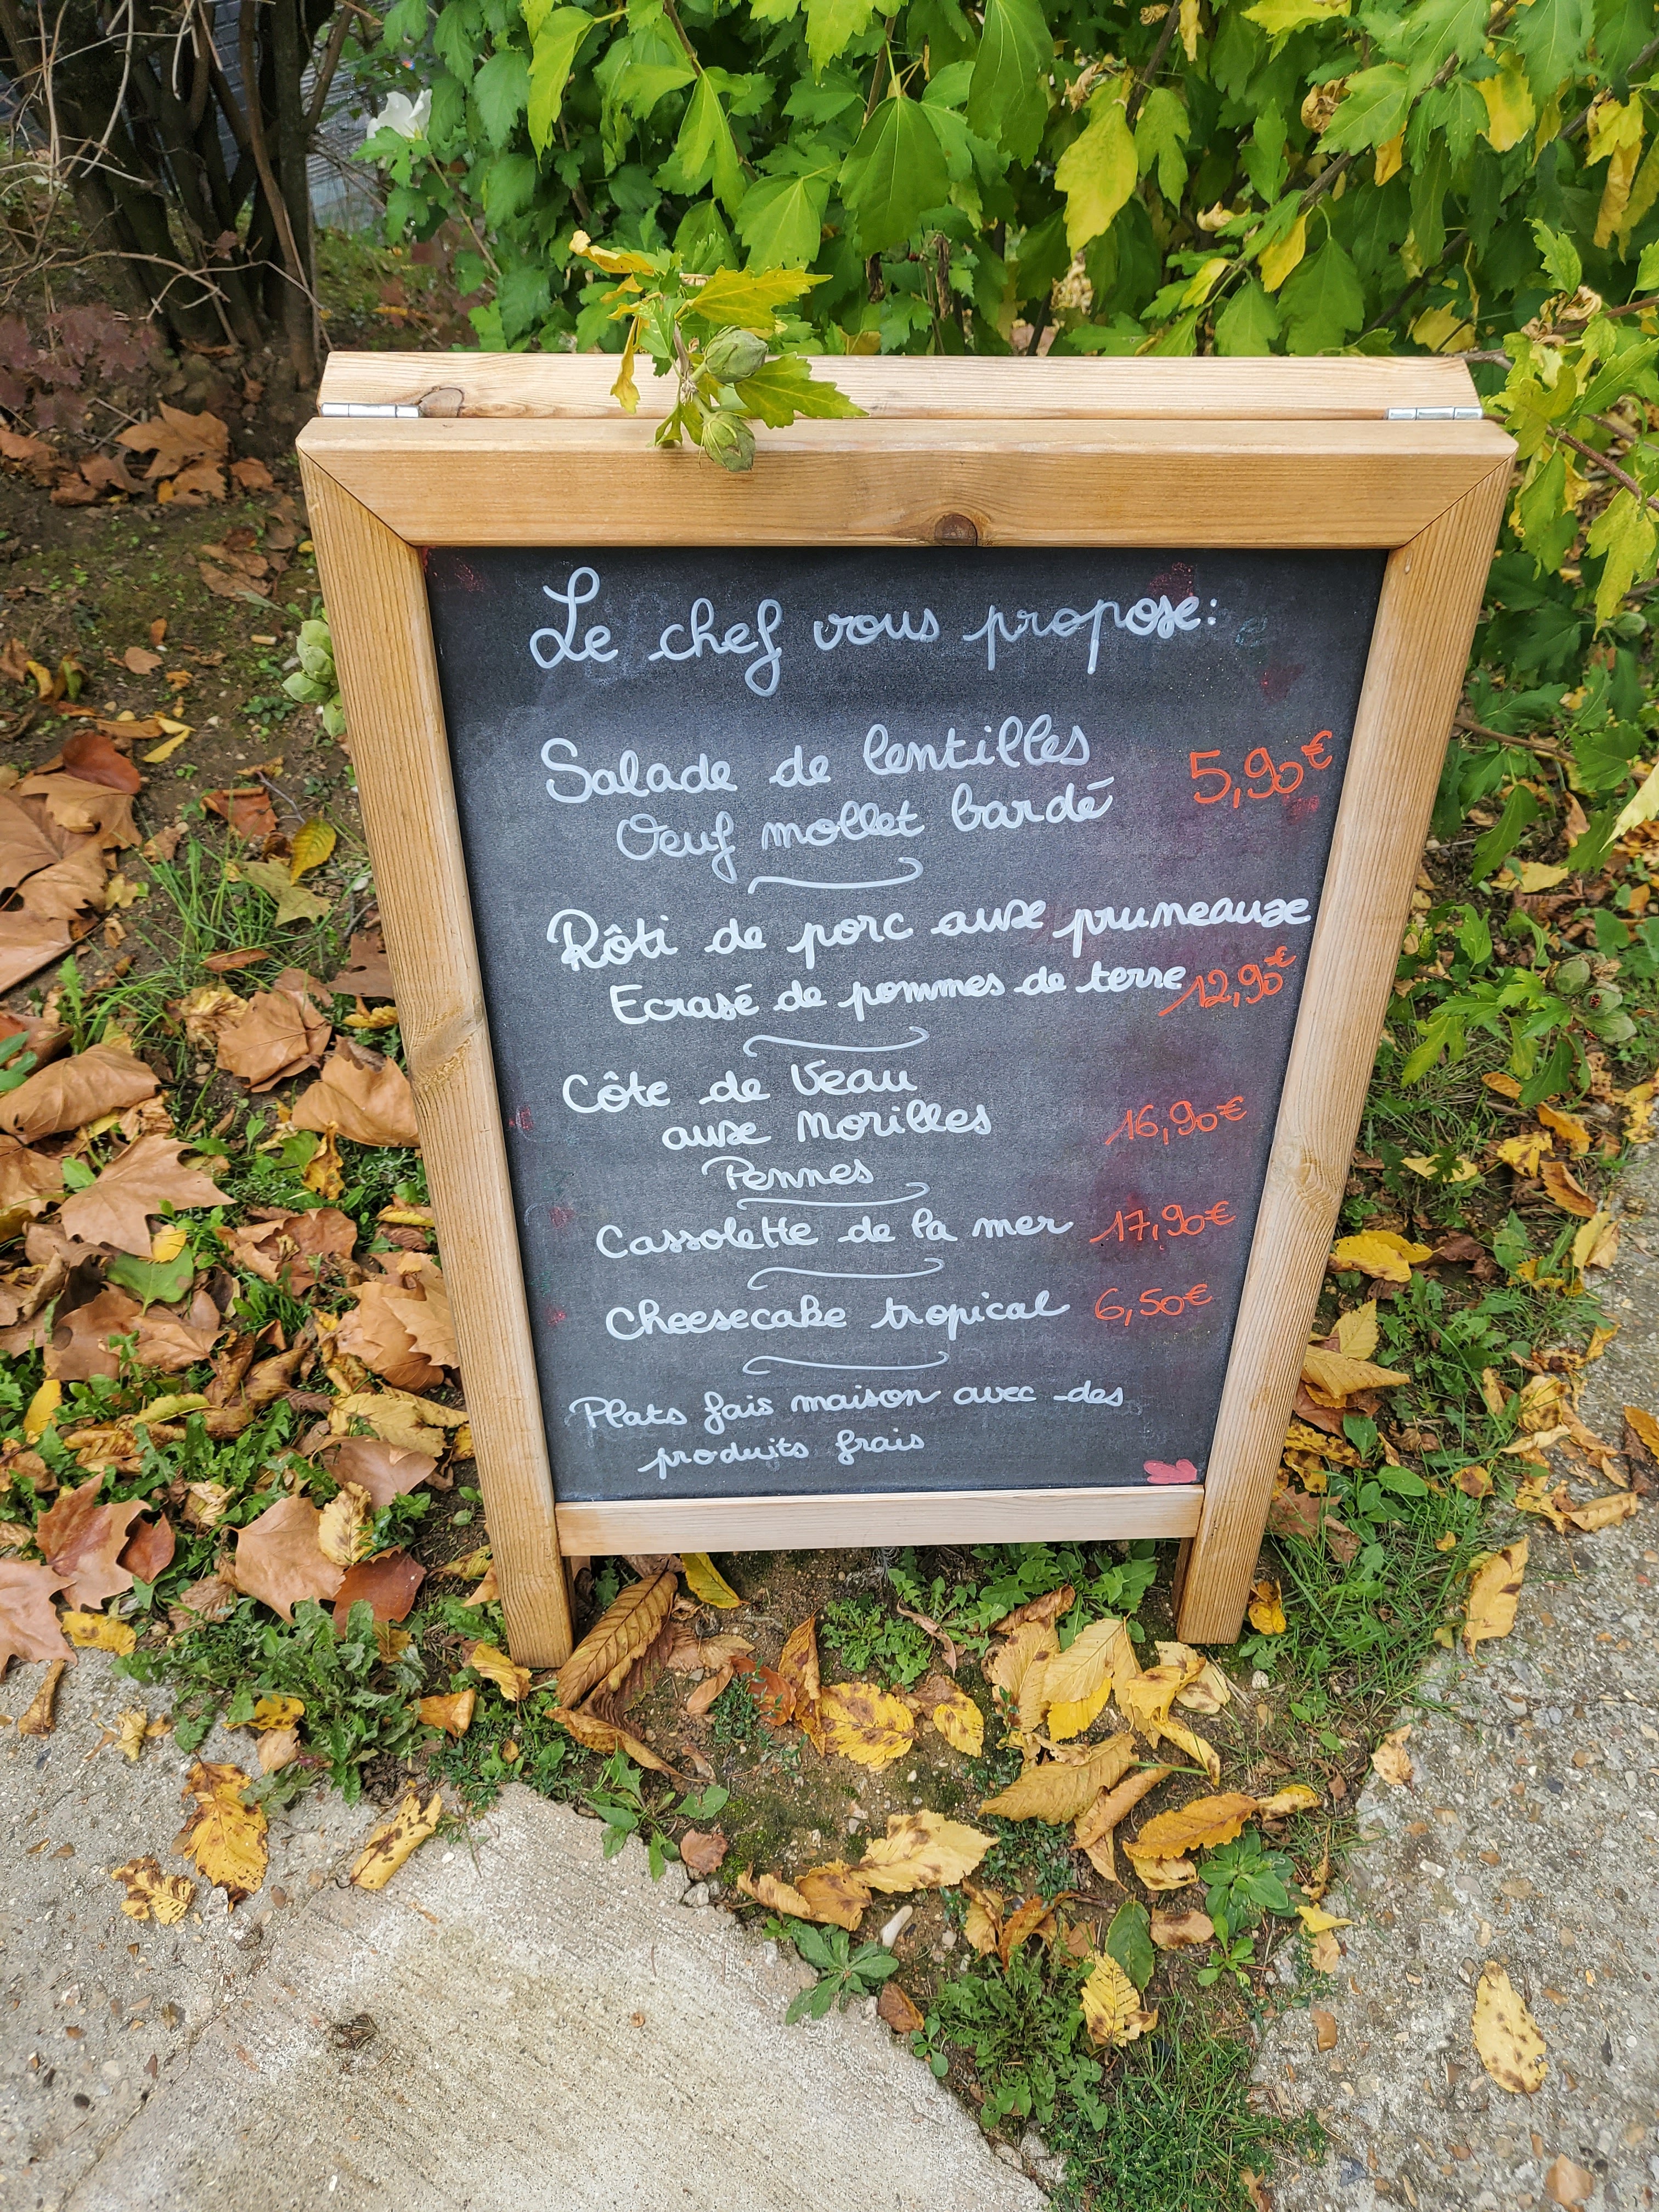 Le chef vous propose:
Salade de lentilles 5,90€
Oeuf mollet bardé
Rôti de porc aux pruneaux
Ecrasé de pommes de terre 12,90€
Côte de Veau
aux Morilles 16,90€
Pennes
Cassolette de la mer 17,90€
Cheesecake tropical 6,50€
Plats fais maison avec des
produits frais